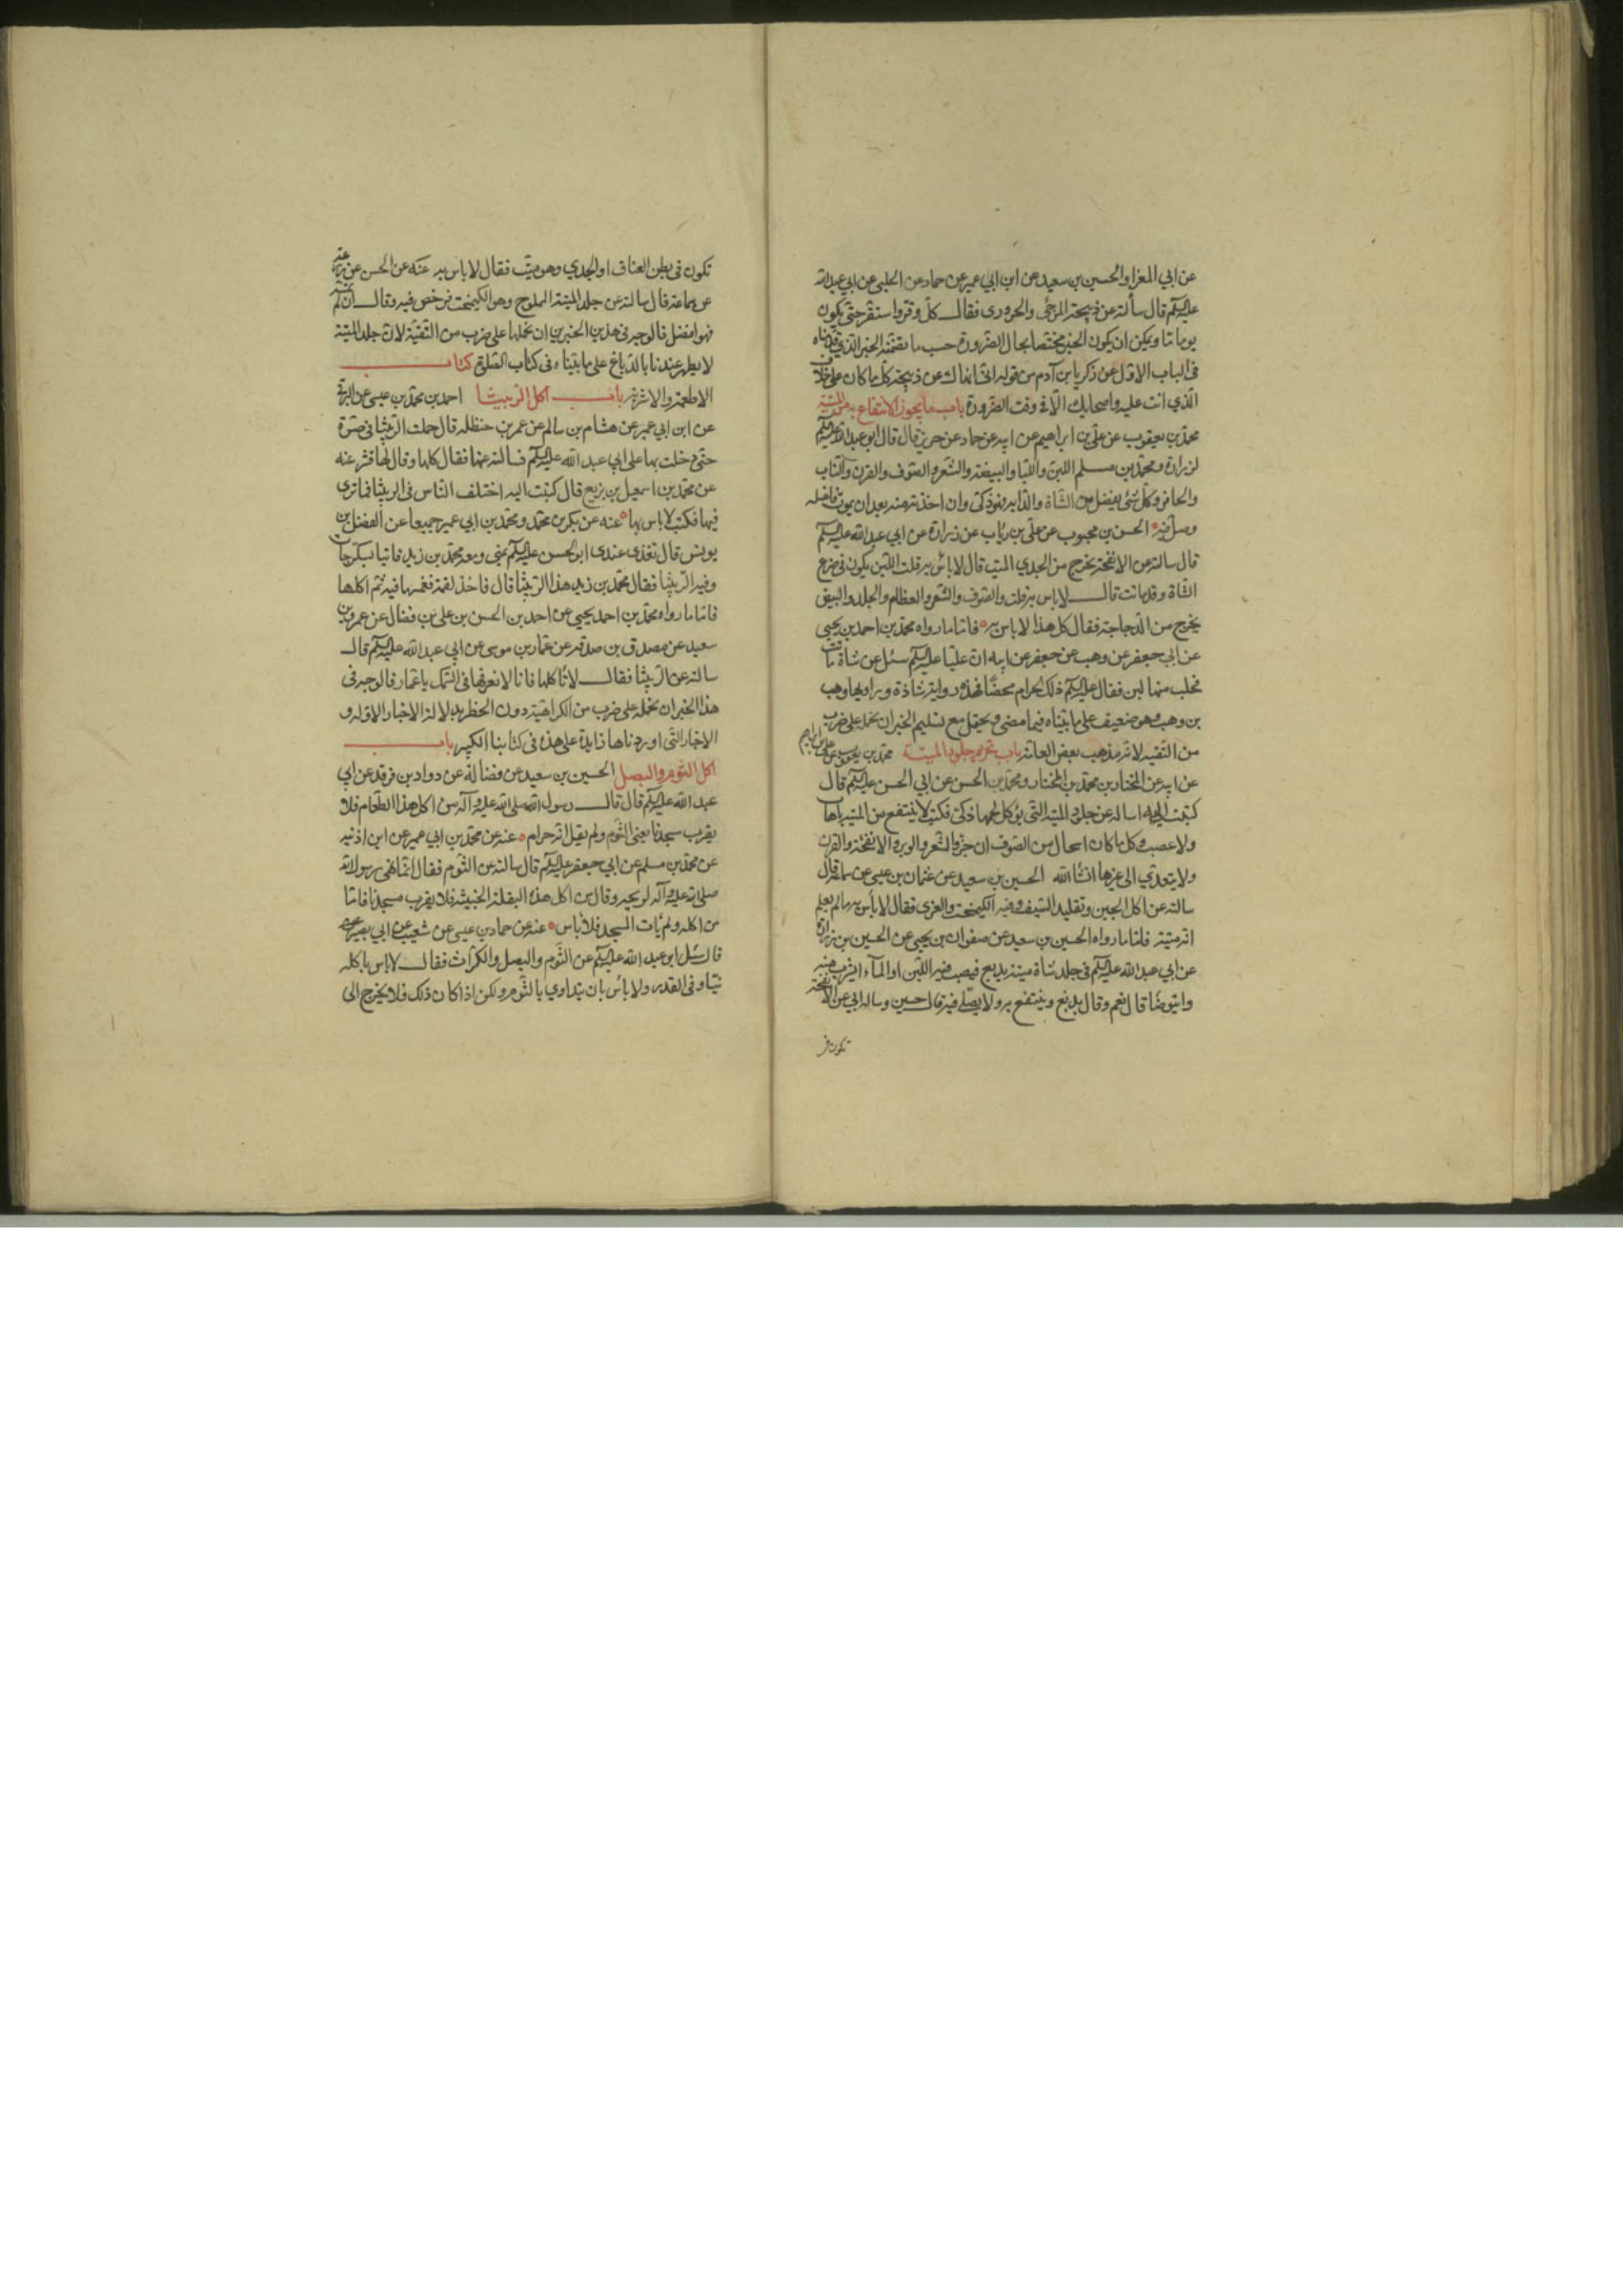 عن ابي المعزا والحسين بن سعيد عن ابن ابي عمير عن حماد عن الحلبى عن ابي عبد الله
عليه السلم قال سألته عن ذبيحة المرجئ والحرورى فقال كل وقر واستقر حتى يكون
يوما ما ويمكن ان يكون الخبر مختصا بحال الضرورة حسب ما تضمنه الخبر الذي قدمناه
فى الباب الاول عن زكريا بن آدم من قوله انى انهاك عن ذبيحة كل من كان على خلاف
الذي انت عليه واصحابك الا فى وقت الضرورة باب ما يجوز الانتفاع به من الميتة
محمد بن يعقوب عن على بن ابراهيم عن ابيه عن حماد عن حريز قال قال ابو عبد الله عليه السلم
لزرارة ومحمد بن مسلم اللبن واللبا والبيضة والشعر والصوف والقرن والناب
والحافر وكل شئ يفصل من الشاة والدابه فهو ذكى وان اخذته منه بعد ان يموت فاغسله
وصل فيه الحسن بن محبوب عن على بن رئاب عن زرارة عن ابي عبد الله عليه السلم
قال سالته عن الانفحة يخرج من الجدي الميت قال لا باس به قلت اللبن يكون فى ضرع
الشاة وقد ماتت قال لا باس به قلت والصوف والشعر والعظام والجلد والبيض
يخرج من الدجاجة فقال كل هذا لا باس به فاما ما رواه محمد بن احمد بن يحيى
عن ابى جعفر عن وهب عن جعفر عن ابيه ان عليا عليه السلم سئل عن شاة ماتت
فحلب منها لبن فقال عليه السلم ذلك الحرام محضا فهذه رواية شاذة وراويها وهب
بن وهب وهو ضعيف على ما بيناه فيما مضى ويحتمل مع تسليم الخبر ان نحمله على ضرب
من التقيه لانه مذهب بعض العامة باب تحريم جلود الميتة محمد بن يعقوب عن على بن ابراهيم
عن ابيه عن المختار بن محمد بن المختار ومحمد بن الحسن عن ابي الحسن عليه السلم قال
كتبت اليه اساله عن جلود الميتة التى يؤكل لحمها ذكى فكتب لا ينتفع من الميتة باهاب
ولا عصب وكل ما كان اسحال من الصوف ان جز والشعر والوبر والانفحة والقرن
ولا يتعدي الى غيرها انشا الله الحسين بن سعيد عن عثمان بن عيسى عن سماعة قال
سالته عن اكل الجبن وتقليد السيف وفيه الكيمخت والغرى فقال لا بأس به ما لم يعلم
انه ميتة فاما ما رواه الحسين بن سعيد عن صفوان بن يحيى عن الحسين بن زرارة
عن ابي عبد الله عليه السلم فى جلد شاة ميتة يدبغ فيصب فيه اللبن او الماء اشرب منه
واتوضا قال نعم وقال يدبغ وينتفع به ولا يصلى فيه قال حسين وساله ابي عن الانفحة
تكون فى
تكون فى بطن العناق او الجدي وهو ميت فقال لا باس به عنه عن الحسن عن زرعة
عن سماعة قال سالته عن جلد الميتة المملوح وهو الكيمخت فرخص فيه وقال ان لم تمسه
فهو افضل فالوجه فى هذين الخبرين ان نحملها على ضرب من التقية لان جلد الميتة
لا يطهر عندنا بالدباغ على ما بيناه فى كتاب الصلوة كتاب
الاطعمة والاشربة باب اكل الربيثا احمد بن محمد بن عيسى عن البرقى
عن ابن ابي عمير عن هشام بن سالم عن عمر بن حنظله قال حملت الربيثا فى صرة
حتى دخلت بها على ابي عبد الله عليه السلم فسالته عنها فقال كلها وقال لها قشر عنه
عن محمد بن اسمعيل بن بزيع قال كتبت اليه اختلف الناس فى الربيثا فما ترى
فيها فكتب لا باس بها عنه عن بكر بن محمد ومحمد بن ابي عمير جميعا عن الفضل بن
يونس قال تغذى عندى ابو الحسن عليه السلم بمنى ومعه محمد بن زيد فاتيا بسكرجات
وفيه الربيثا فقال محمد بن زيد هذا الربيثا قال فاخذ لقمة فغمسها فيه ثم اكلها
فاما ما رواه محمد بن احمد بن يحيى عن احمد بن الحسن بن على بن فضال عن عمرو بن
سعيد عن مصدق بن صدقه عن عمار بن موسى عن ابي عبد الله عليه السلم قال
سالته عن الربيثا فقال لا تأكلها فانا لا نعرفها فى السمك يا عمار فالوجه فى
هذا الخبر ان نحمله على ضرب من الكراهية دون الحظر بدلالة الاخبار الاوله و
الاخبار التى اوردناها زايدة على هذه فى كتابنا الكبير باب
اكل الثوم والبصل الحسين بن سعيد عن فضالة عن داود بن فرقد عن ابي
عبد الله عليه السلم قال قال رسول الله صلى الله عليه وآله من اكل هذا الطعام فلا
يقرب مسجدنا يعنى الثوم ولم يقل انه حرام عنه عن محمد بن ابي عمير عن ابن اذنيه
عن محمد بن مسلم عن ابي جعفر عليه السلم قال سالته عن الثوم فقال انما نهى رسول الله
صلى الله عليه وآله لريحه وقال من اكل هذه البقلة الخبيثة فلا يقرب مسجدنا فاما
من اكله ولم يات المسجد فلا باس عنه عن حماد بن عيسى عن شعيب عن ابي بصير
قال سئل ابو عبد الله عليه السلم عن الثوم والبصل والكراث فقال لا باس باكله
نيا وفى القدر ولا باس بان يتداوي بالثوم ولكن اذا كان ذلك فلا يخرج الى